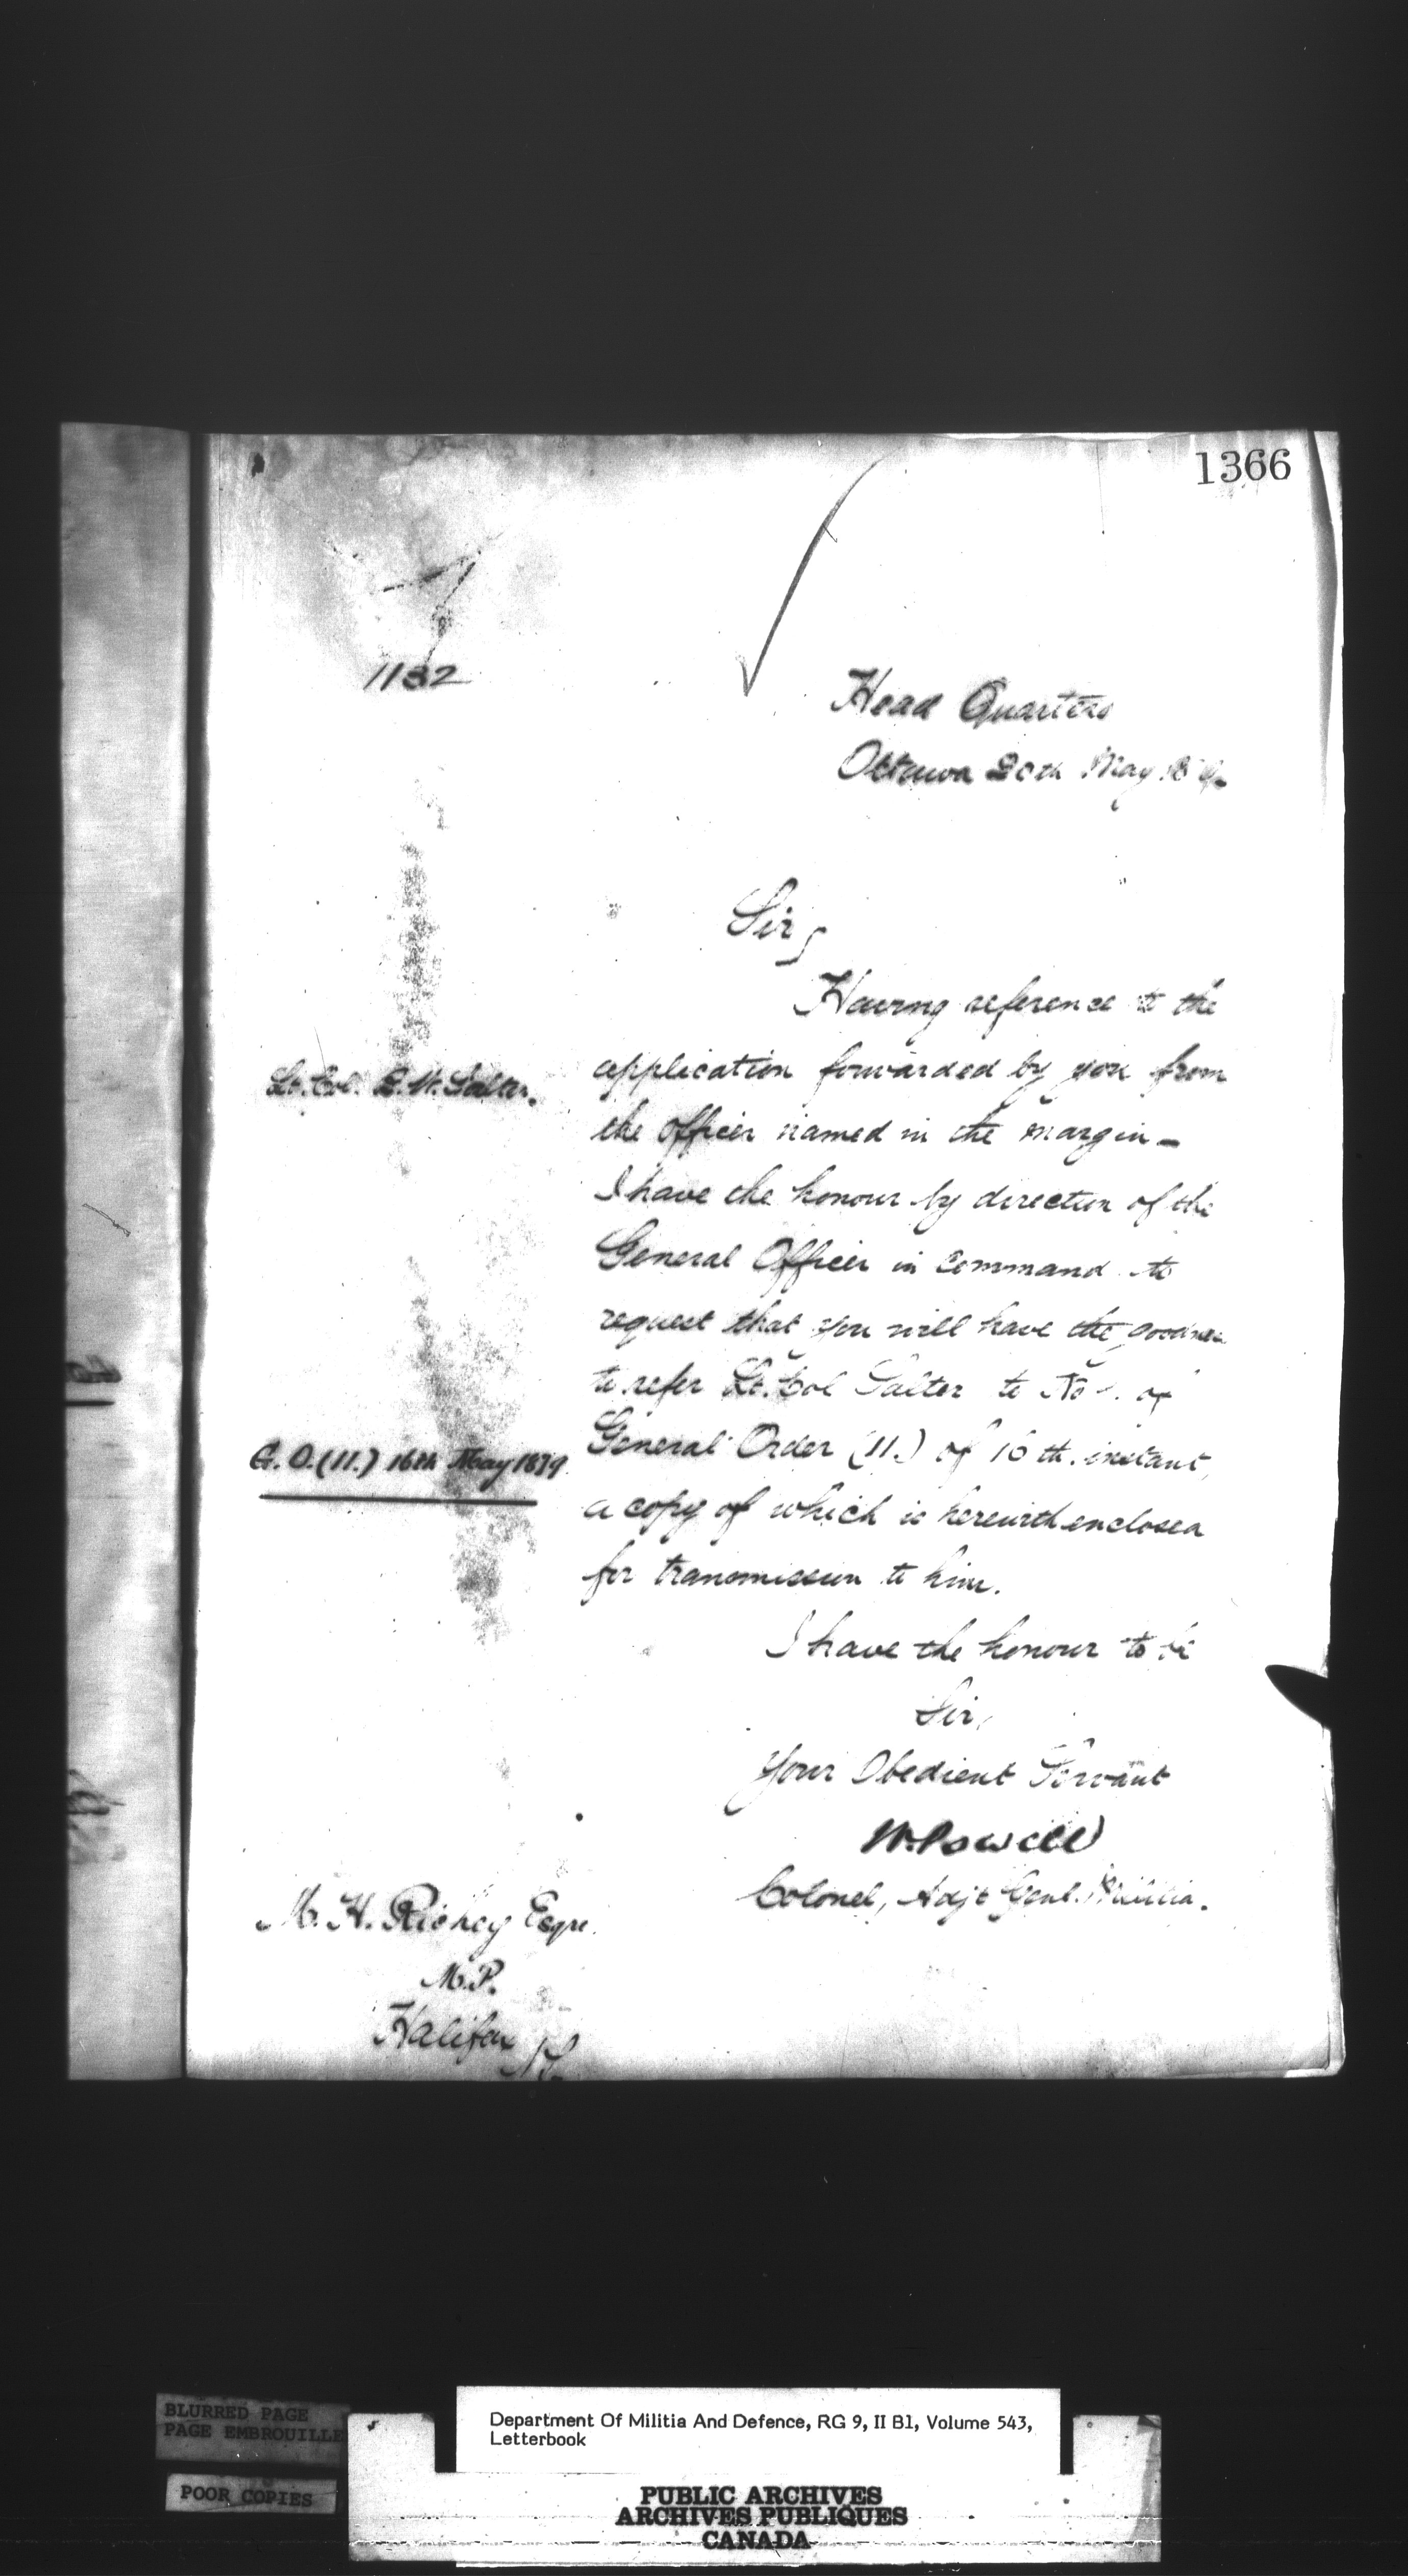 1366
1132
Head Quarters
Ottawa 20th May
Sir,
Having reference to the
Lt. Col. Salter.
application forwarded by you from
the officer named in the margin —
I have the honour by direction of the
General Officer in command to
request that you will have the goodness
to refer Lt. Col Salter to No of
G. O. (11.) 16th May 1879.
General Order (11.) of 16th. instant,
a copy of which is herewith enclosed
for transmission to him.
I have the honour to be
Sir,
Your Obedient Servant
W. Powell
Colonel, Adjt Genl. Militia.
M. H. Richey Esqre.
M.P.
Halifax
BLURRED PAGE
PAGE EMBROUILLE
POOR COPIES
Department Of Militia And Defence, RG 9, II B1, Volume 543,
Letterbook
PUBLIC ARCHIVES
ARCHIVES PUBLIQUES
CANADA